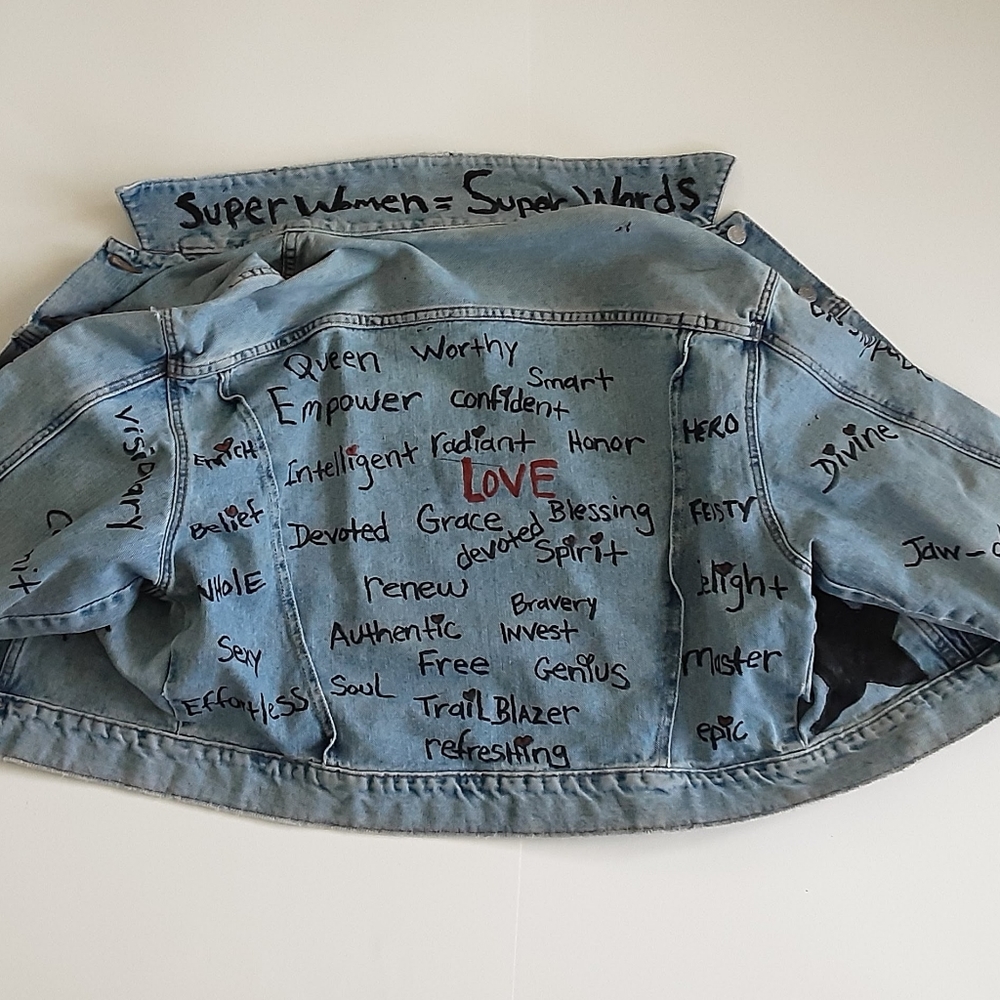 Super Women = Super Words
Queen Worthy
Smart
Empower confident
Intelligent radiant Honor
LOVE
Devoted Grace Blessing
devoted Spirit
renew
Bravery
Authentic Invest
Free Genius
Soul
TrailBlazer
refreshing
Visionary
Enrich
Belief
WHOlE
Sexy
Effortless
HERO
FEISTY
Master
epic
Divine